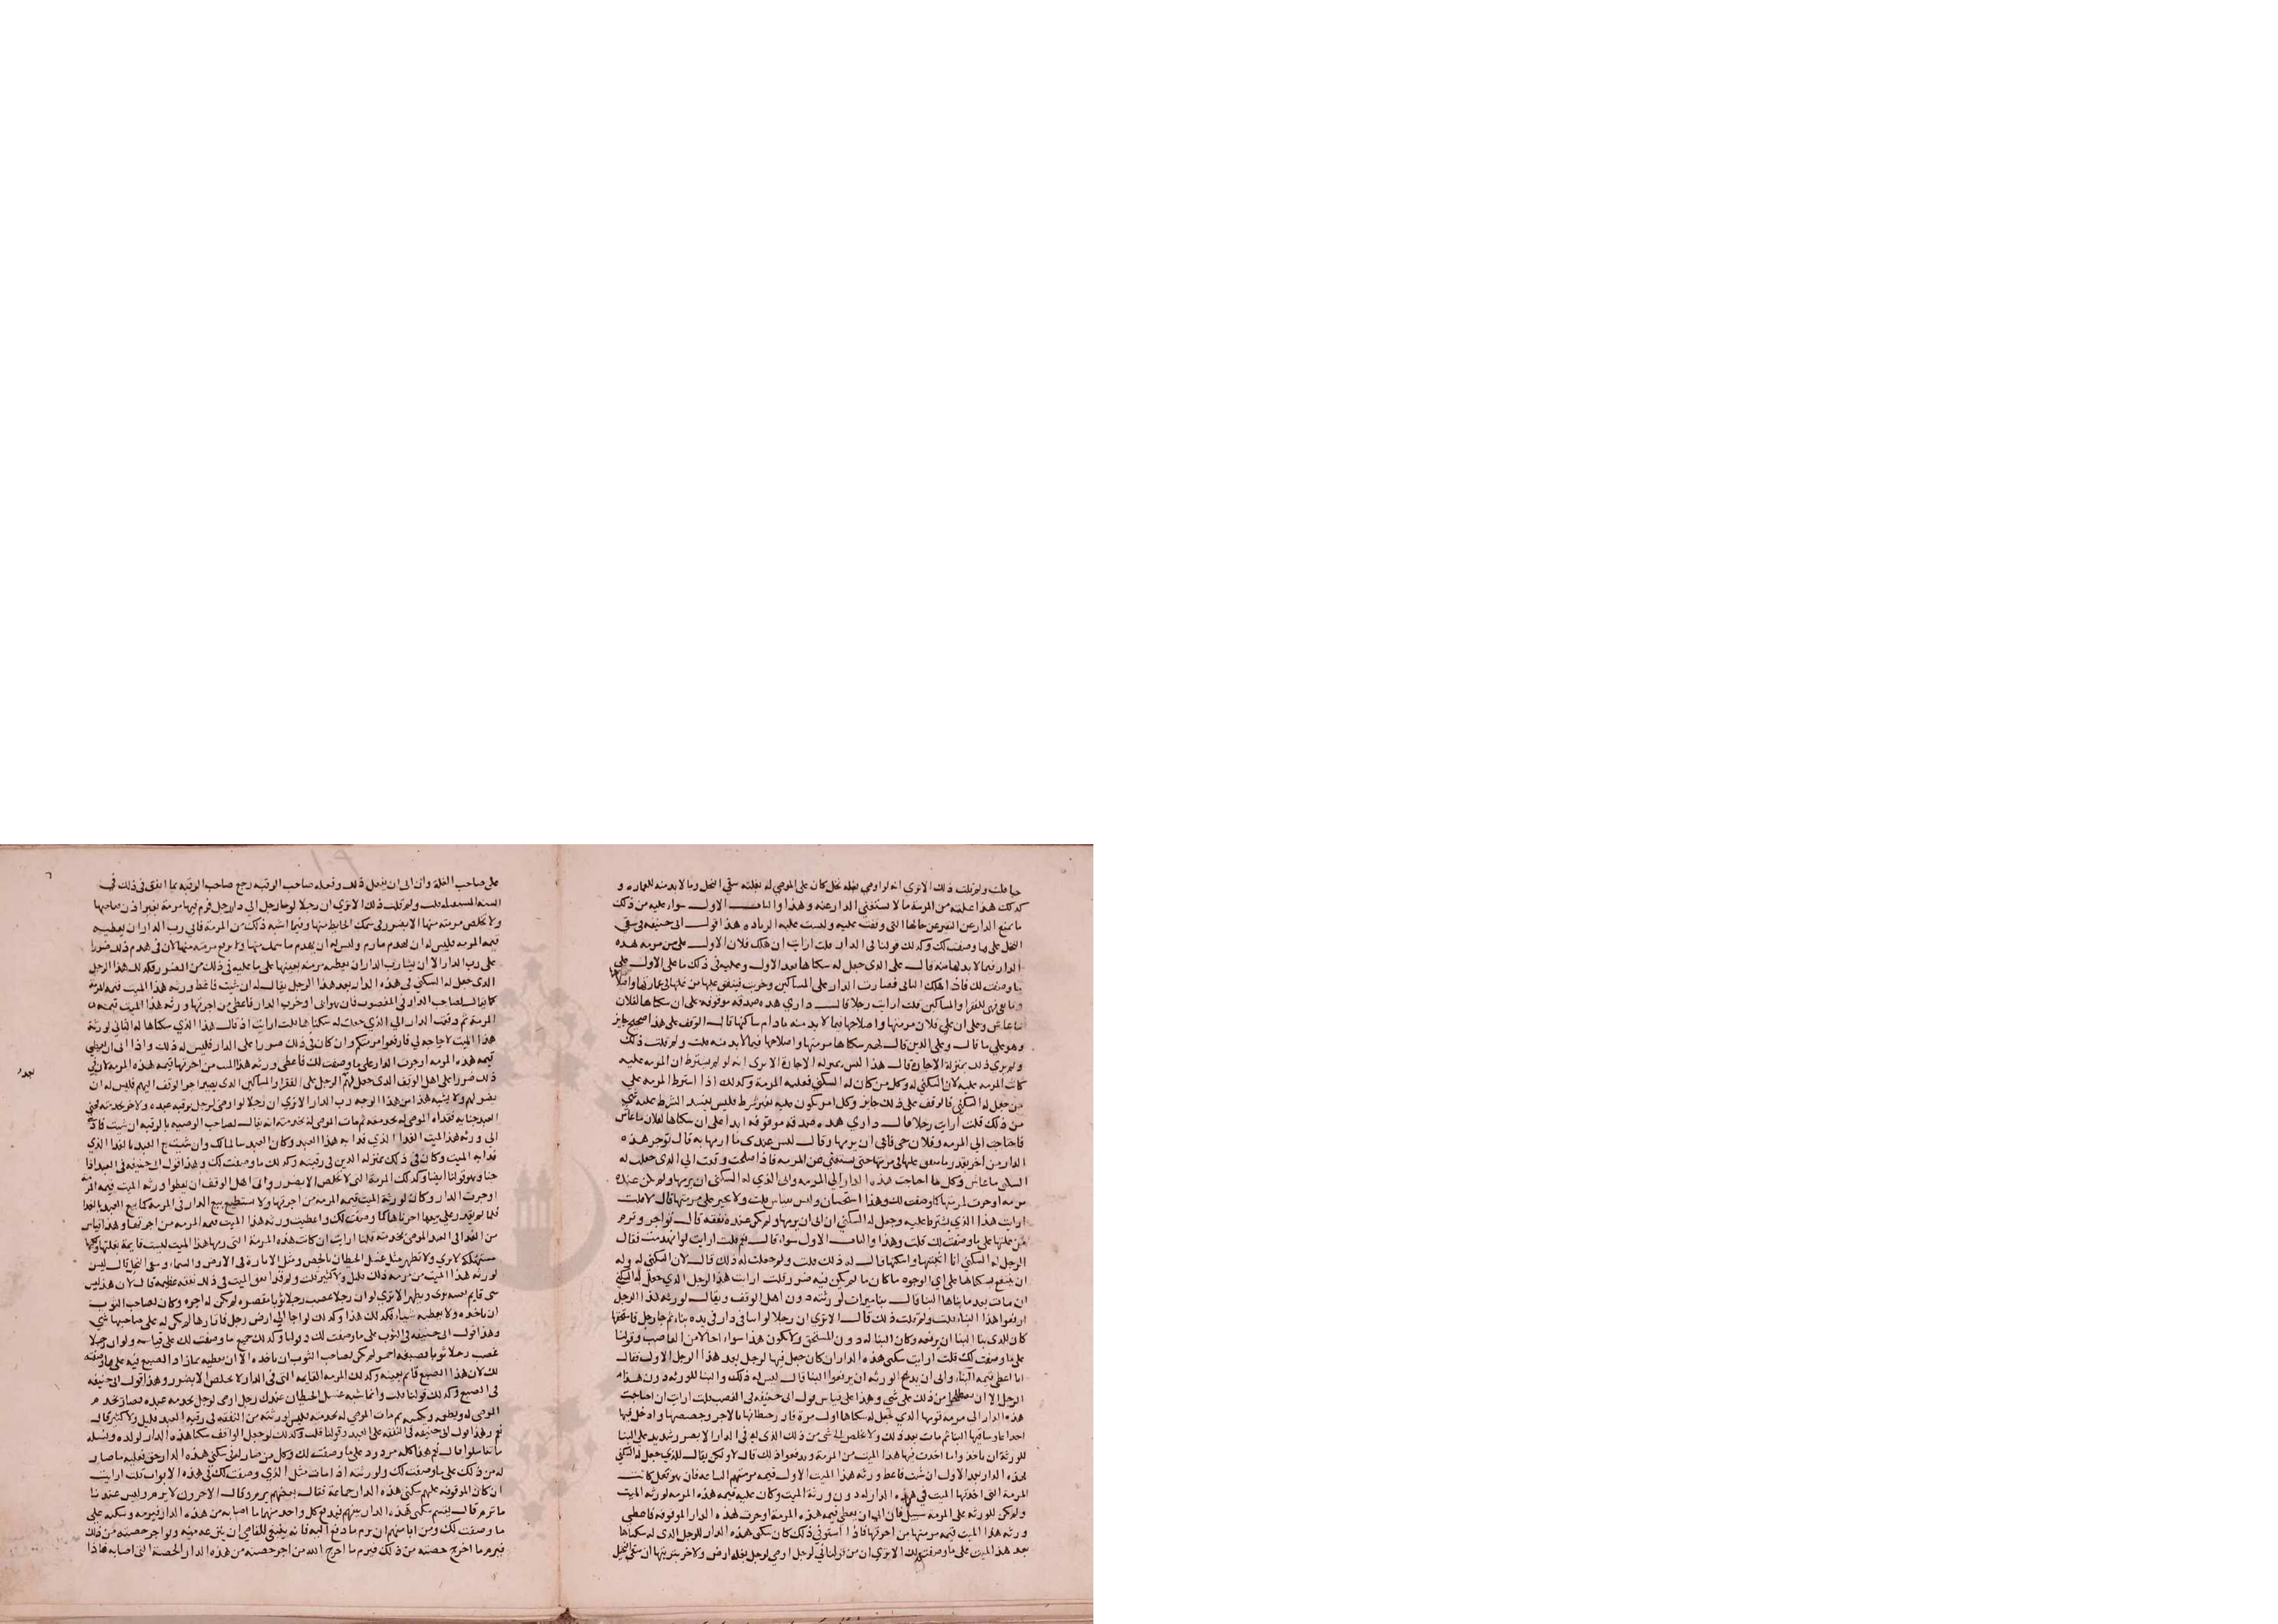 حيا قلت ولم قلت ذلك الا ترى انه لو اوصى بغلة نخل كان على الموصى له بغلته سقي النخل وما لا بد منه للعمارة و
كذلك هذا عليه من المرمة ما لا تستغني الدار عنه وهذا والباب الاول سواء عليه من ذلك
ما يمنع الدار عن التغير عن حالها التي وقفت عليه وليست عليه الزيادة هذا قول ابي حنيفة في سقي
النخل على ما وصفت لك وكذلك قولنا في الدار قلت ارايت ان هلك فلان الاول على من مرمة هذه
الدار فيما لا بد لها منه قال على الذي جعل له سكناها بعد الاول وعليه في ذلك ما على الاول على
ما وصفت لك فاذا هلك الثاني فصارت الدار على المساكين وخربت فينفق عليها من غلتها في عمارتها واصلا
وما بقي فهي للفقرا والمساكين قلت ارايت رجلا قال داري هذه صدقة موقوفة على ان سكناها لفلان
ما عاش وعلى ان على فلان مرمتها واصلاحها فيما لا بد منه ما دام ساكنها قال الوقف على هذا صحيح جايز
وهو على ما قال وعلى الذين قال لهم سكناها مرمتها واصلاحها فيما لا بد منه قلت ولم قلت ذلك
ولم ترى ذلك بمنزلة الاجارة قال هذا ليس بمنزلة الاجارة الا ترى انه لو لم يشترط ان المرمة عليه
كانت المرمة عليه لان السكنى له وكل من كان له السكنى فعليه المرمة وكذلك اذا اشترط المرمة على
من جعل له السكنى فالوقف على ذلك جايز وكل امر يكون عليه بغير شرط فليس يفسد الشرط عليه شي
من ذلك قلت ارايت رجلا قال داري هذه صدقة موقوفة ابدا على ان سكناها لفلان ما عاش
فاحتاجت الى المرمة وفلان حي فابى ان يرمها وقال ليس عندي ما ارمها به قال تؤجر هذه
الدار من اخر بقدر ما ينفق عليها في مرمتها حتى يستغنى عن المرمة فاذا اصلحت وقت الى الذي جعلت له
السكنى ما عاش وكلما احتاجت هذه الدار الى المرمة وابى الذي له السكنى ان يرمها ولم يكن عنده
مرمة اوجرت لمرمتها كما وصفت لك وهذا استحسان وليس بقياس قلت ولا يجبر على مرمتها قال لا قلت
ارايت هذا الذي يشترط عليه وجعل له السكنى ان ابى ان يرمها ولم يكن عنده نفقة قال تواجر وترم
من غلتها على ما وصفت لك قلت وهذا والباب الاول سواء قال نعم قلت ارايت لو انهدمت فقال
الرجل له السكنى انا ابنيها واسكنها قال له ذلك قلت ولم جعلت له ذلك قال لان السكنى له وله
ان ينتفع بسكناها على اي الوجوه ما كان ما لم يكن فيه ضرر قلت ارايت هذا الرجل الذي جعل له السكنى
ان مات بعد ما بناها البنا قال بنا ميراث لورثته دون اهل الوقف ويقال لورثة هذا الرجل
ارفعوا هذا البناء قلت ولم قلت ذلك قال الا ترى ان رجلا لو بنا في دار في يده بناء ثم جا رجل فاستحقها
كان للذي بنا البنا ان يرفعه وكان البنا له دون المستحق ولا يكون هذا سواء احالا من الغاصب وقولنا
على ما وصفت لك قلت ارايت سكنى هذه الدار ان كان جعل فيها لرجل بعد هذا الرجل الاول فقال
انا اعطي قيمة البناء وابى ان يدع الورثة ان يرفعوا البنا قال ليس له ذلك والبنا للورثة دون هذا
الرجل الا ان يصطلحوا من ذلك على شي وهذا على قياس قول ابي حنيفة في الغصب قلت ارايت ان احتاجت
هذه الدار الى مرمة فرمها الذي جعل له سكناها اول مرة فازر حيطانها بالاجر وجصصها وادخل فيها
للورثة ان ياخذوا ما احدث فيها هذا الميت من المرمة ويرفعوا ذلك قال لا ولكن يقال للذي جعل له السكنى
لهذه الدار بعد الاول ان شئت فاعط ورثة هذا الميت الاول قيمة مرمتهم الساعة فان هو فعل كانت
المرمة التي احدثها الميت في هذه الدار له دون ورثة الميت وكان عليه قيمة هذه المرمة لورثة الميت
ولم يكن للورثة على المرمة سبيل فان ابى ان يعطي قيمة هذه المرمة اوجرت هذه الدار الموقوفة فاعطى
ورثة هذا الميت قيمة مرمتها من اجرتها فاذا استوفي ذلك كان سكنى هذه الدار للرجل الذي له سكناها
بعد هذا الميت على ما وصفت لك الا ترى ان من قولنا في رجل اوصى لرجل بغلة ارض ولاخر برقبتها ان سقي النخل
على صاحب الغلة وان ابى ان يفعل ذلك وفعله صاحب الرقبة رجع صاحب الرقبة بما انفق في ذلك في
السنة المستقبلة قلت ولم قلت ذلك الا ترى ان رجلا لو جا رجل الى دار رجل فرم فيها مرمة بغير اذن صاحبها
ولا تخلص مرمته منها الا بضرر في سمك الحايط منها وفيما اشبه ذلك من المرمة فابى رب الدار ان يعطيه
قيمة المرمة فليس له ان يهدم ما رم وليس له ان يهدم ما سمك منها ولا يرفع مرمته منها لان في هدم ذلك ضررا
على رب الدار الا ان يشا رب الدار ان يعطيه مرمته بعينها على ما عليه في ذلك من الضرر فكذلك هذا الرجل
الذي جعل له السكنى في هذه الدار بعد هذا الرجل يقال له ان شئت فاعط ورثة هذا الميت قيمة المرمة
كما يقال لصاحب الدار في المغصوب فان هو ابى اوخرت الدار فاعطي من اجرتها ورثة هذا الميت قيمة
المرمة ثم دفعت الدار الى الذي جعلت له سكناها قلت ارايت اذ قال هذا الذي سكناها له الثاني لورثة
هذا الميت لا حاجة لي فارفعوا مرمتكم وان كان في ذلك ضررا على الدار فليس له ذلك واذا ابى ان يعطي
قيمة هذه المرمة اوجرت الدار على ما وصفت لك فاعطى ورثة هذا الميت من اجرتها قيمة هذه المرمة لان في
ذلك ضررا على اهل الوقف الذي جعل لهم الرجل على الفقرا والمساكين الذي يصير اجر الوقف اليهم فليس له ان
يضر لهم ولا يشبه هذا من هذا الوجه رب الدار الا ترى ان رجلا لو اوصى لرجل برقبة عبده ولاخر بخدمته فجنى
العبد جناية ففداه الموصى له بخدمته ثم مات الموصى له بخدمته انه يقال لصاحب الوصية بالرقبة ان شئت فاد
الى ورثة هذا الميت الفدا الذي فدا به هذا العبد وكان العبد سالما لك وان شئت بيع العبد بالفدا الذي
فداه الميت وكان في ذلك بمنزلة الدين في رقبته وكذلك ما وصفت لك وهذا قول ابي حنيفة في العبد اذا
جنا وهو قولنا ايضا وكذلك المرمة التي لا تخلص الا بضرر وابى اهل الوقف ان يعطوا ورثة الميت قيمة المرمة
اوجرت الدار وكان لورثة الميت قيمة المرمة من اجرتها ولا استطيع بيع الدار في المرمة كما بيع العبد بالفدا
فلما لم يقدر على بيعها اجرناها كما وصفت لك واعطيت ورثة هذا الميت قيمة المرمة من اجرتها وهذا قياس
من الفدا في العبد الموصى بخدمته قلنا ارايت ان كانت هذه المرمة التي رمها هذا الميت ليست قايمة بعينها
مستهلكة لا ترى ولا تظهر مثل غسل الحيطان بالجص ومثل الاثارة في الارض والسماد وسقي النخل قال ليس
لورثة هذا الميت من مرمة ذلك قليل ولا كثير قلت ولم وقد انفق الميت في ذلك نفقة عظيمة قال لان هذا ليس
شي قايم بعينه يرى ويظهر الا ترى لو ان رجلا غصب رجلا ثوبا فقصره لم يكن له اجره وكان لصاحب الثوب
ان ياخذه ولا يعطيه شيئا فكذلك هذا وكذلك لو جا الى ارض رجل فاثارها لم يكن له على صاحبها شي
وهذا قول ابي حنيفة في الثوب على ما وصفت لك وقولنا وكذلك جميع ما وصفت لك على قياسه ولو ان رجلا
غصب رجلا ثوبا فصبغه احمر لم يكن لصاحب الثوب ان ياخذه الا ان يعطيه بما زاد الصبغ فيه على ما وصفت
لك لان هذا الصبغ قايم بعينه وكذلك المرمة القايمة التي في الدار لا تخلص الا بضرر وهذا قول ابي حنيفة
في الصبغ وكذلك قولنا قلت وانما شبه غسل الحيطان عندك رجل اوصى لرجل بخدمة عبده فصار يخدم
الموصى له ويطعمه ويكسيه ثم مات الموصى له بخدمته فليس لورثته من النفقة في رقبة العبد قليل ولا كثير قال
نعم وهذا قول ابي حنيفة في النفقة على العبد وقولنا قلت وكذلك لو جعل الواقف سكنا هذه الدار لولده ونسله
ما تناسلوا قال نعم هذا كله مردود على ما وصفت لك وكل من صار له في سكنى هذه الدار حق فعليه ما صار
له من ذلك على ما وصفت لك ولورثته اذا مات مثل الذي وصفت لك في هذه الابواب قلت ارايت
ان كان الموقوفة عليهم سكنى هذه الدار جماعة فقال بعضهم يرم وقال الاخرون لا يرم وليس عندنا
ما نرم قال يقسم سكنى هذه الدار بينهم فيدفع كل واحد منهم ما اصابه من هذه الدار فيرمه ويسكنه على
ما وصفت لك ومن ابا منهم ان يرم ما دفع اليه فانه ينبغي للقاضي ان ينزعه منه ويواجر حصته من ذلك
فيرم ما اخرج حصته من ذلك فيرم ما اخرج الله من اجر حصته من هذه الدار الحصة التي اصابه فاذا